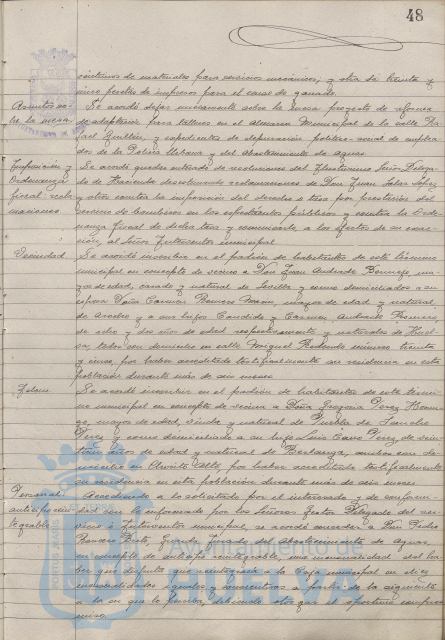 48
céntimos de materiales para servicios mecánicos, y otra de treinta y
cinco pesetas de impresos para el caso de ganado
Asuntos so-
bre la mesa
Se acordó dejar nuevamente sobre la mesa proyecto de reforma
de adaptación para talleres en el Almacén Municipal de la calle Ra-
fael Guillén, y expedientes de depuración político-social de emplea-
dos de la Policía Urbana y del Abastecimiento de Aguas.
Imposición y
Ordenanza
fiscal recla-
maciones
Se acordó quedar enterado de resoluciones del Ilustrísimo Señor Delega-
do de Hacienda desestimando reclamaciones de Don Juan López
y otros contra la imposición del derecho o tasa por prestación del
servicio de bomberos en los espectáculos públicos y contra la Orde-
nanza fiscal de dicha tasa y comunicarla a los efectos de su exac-
ción, al Señor Interventor municipal
Vecindad
Se acordó inscribir en el padrón de habitantes de este término
municipal en concepto de vecino a Don Juan Andrade ma-
yor de edad, casado y natural de Sevilla y como domiciliados a su
esposa Doña Carmen mayor de edad y natural
de Aroche y a sus hijos Candida y Carmen Andrade
de ocho y dos años de edad respectivamente y naturales de Huel-
va, todos con domicilio en calle Miguel Redondo número treinta
y cinco, por haber acreditado testificalmente su residencia en esta
población durante más de seis meses
Idem
Se acordó inscribir en el padrón de habitantes de este térmi-
no municipal en concepto de vecina a Doña Gregoria Pérez
mayor de edad, viuda y natural de Puebla de Sancho
Pérez y como domiciliado a su hijo Luis Cano Pérez de vein-
años de edad y natural de Berlanga, ambos con do-
micilio en Chorrito Alto, por haber acreditado testificalmente
su residencia en esta población durante más de seis meses
Personal:
anticipo rein-
tegrable
Accediendo a lo solicitado por el interesado y de conformi-
dad con lo informado por los Señores Gestor Delegado del ser-
vicio e Interventor municipal, se acordó conceder a Don Pedro
Guarda Jurado del Abastecimiento de Aguas,
en concepto de anticipo reintegrable, una mensualidad del ha-
ber que disfruta que reintegrará a la Caja municipal en diez
mensualidades iguales y consecutivas a partir de la siguiente
a la en que lo perciba, debiendo otorgar el oportuno compro-
miso
Ayuntamiento de
HUELVA